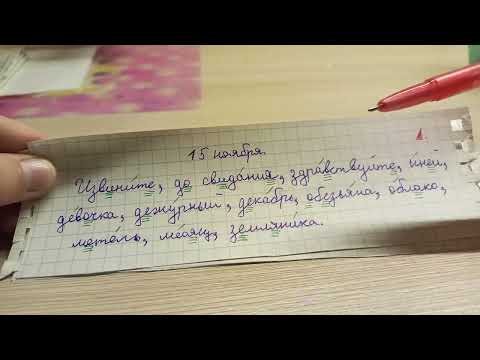 15 ноября.
Извините, до свидания, здравствуйте, иней,
девочка, дежурный, декабрь, обезьяна, облако,
метель, месяц, земляника.